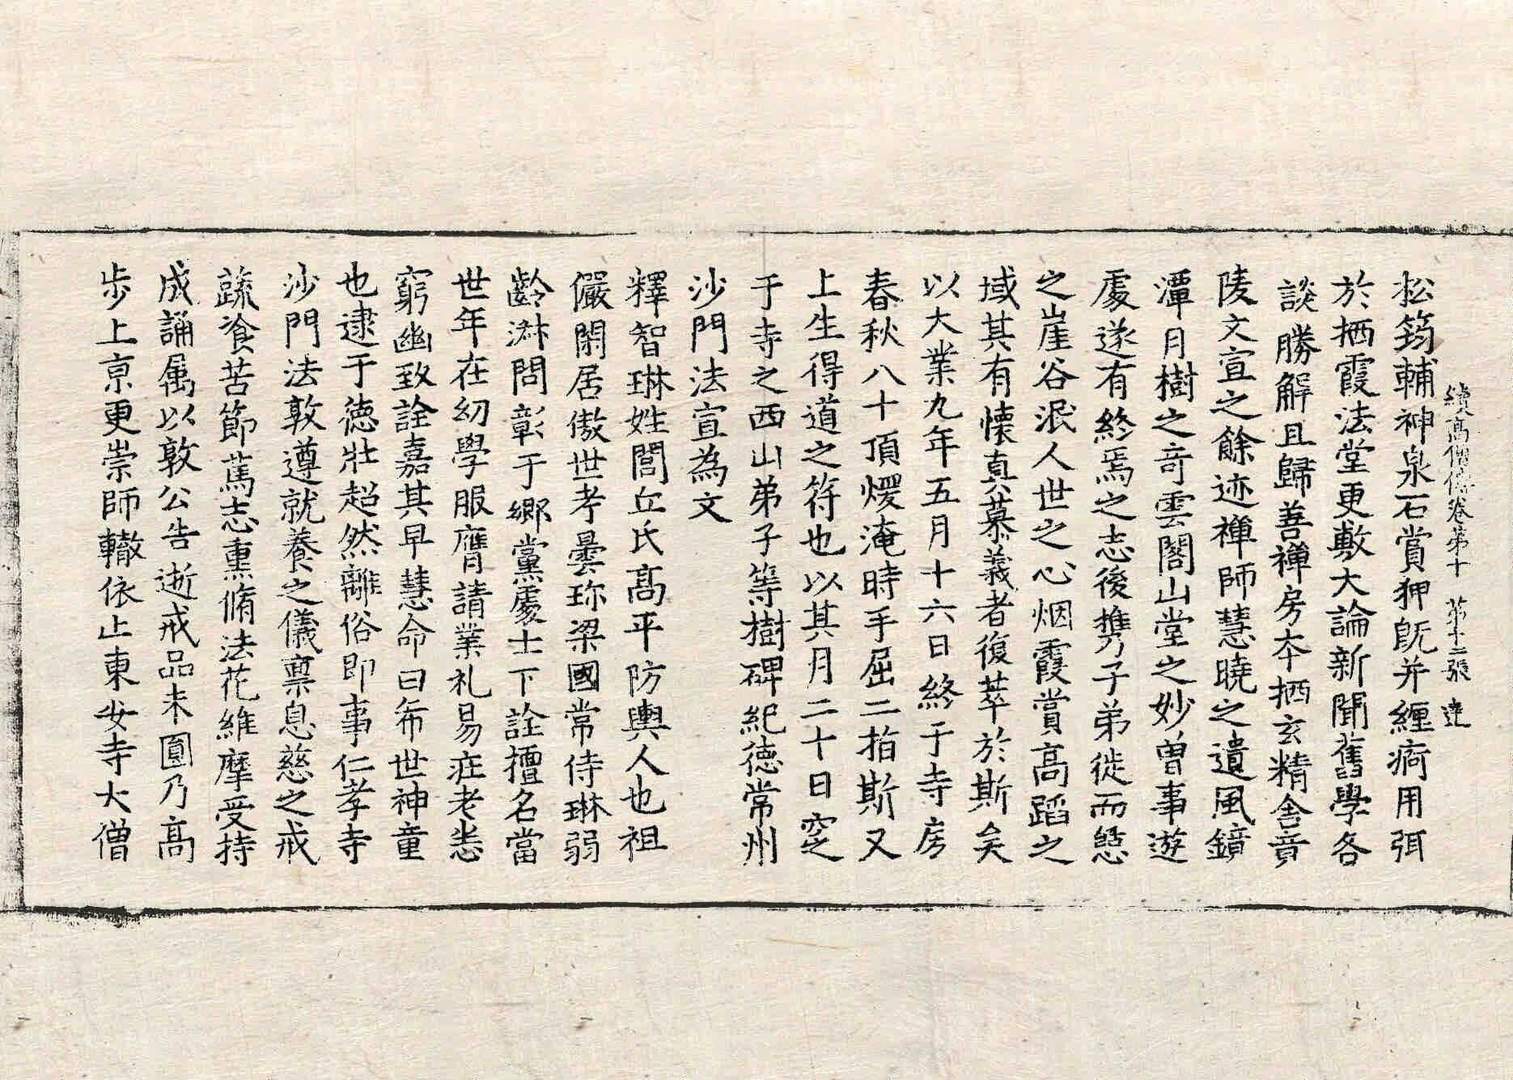 續高僧傳卷第十　第十二張　達
松筠輔神泉石賞狎旣并纏痾用弭
於栖霞法堂更敷大論新聞舊學各
談勝解且歸善禪房夲栖玄精舍竟
陵文宣之餘迹禪師慧曉之遺風鏡
潭月樹之奇雲閣山堂之妙曾事遊
處遂有終焉之志後携子弟徙而憇
之崖谷泯人世之心烟霞賞高蹈之
域其有懷真慕義者復萃於斯矣
以大業九年五月十六日終于寺房
春秋八十頂煖淹時手屈二指斯又
上生得道之符也以其月二十日窆
于寺之西山弟子等樹碑紀德常州
沙門法宣為文
釋智琳姓閭丘氏高平防輿人也祖
儼閑居傲世考曇珎梁國常侍琳弱
齡淋問彰于鄉黨處士下詮擅名當
世年在㓜學服膺請業礼易莊老悉
窮幽致詮嘉其早慧命曰希世神童
也逮于德壯超然離俗即事仁孝寺
沙門法敦遵就養之儀稟息慈之戒
蔬飡苦節篤志熏脩法花維摩受持
成誦属以敦公告逝戒品未圓乃高
步上京更崇師轍依止東安寺大僧